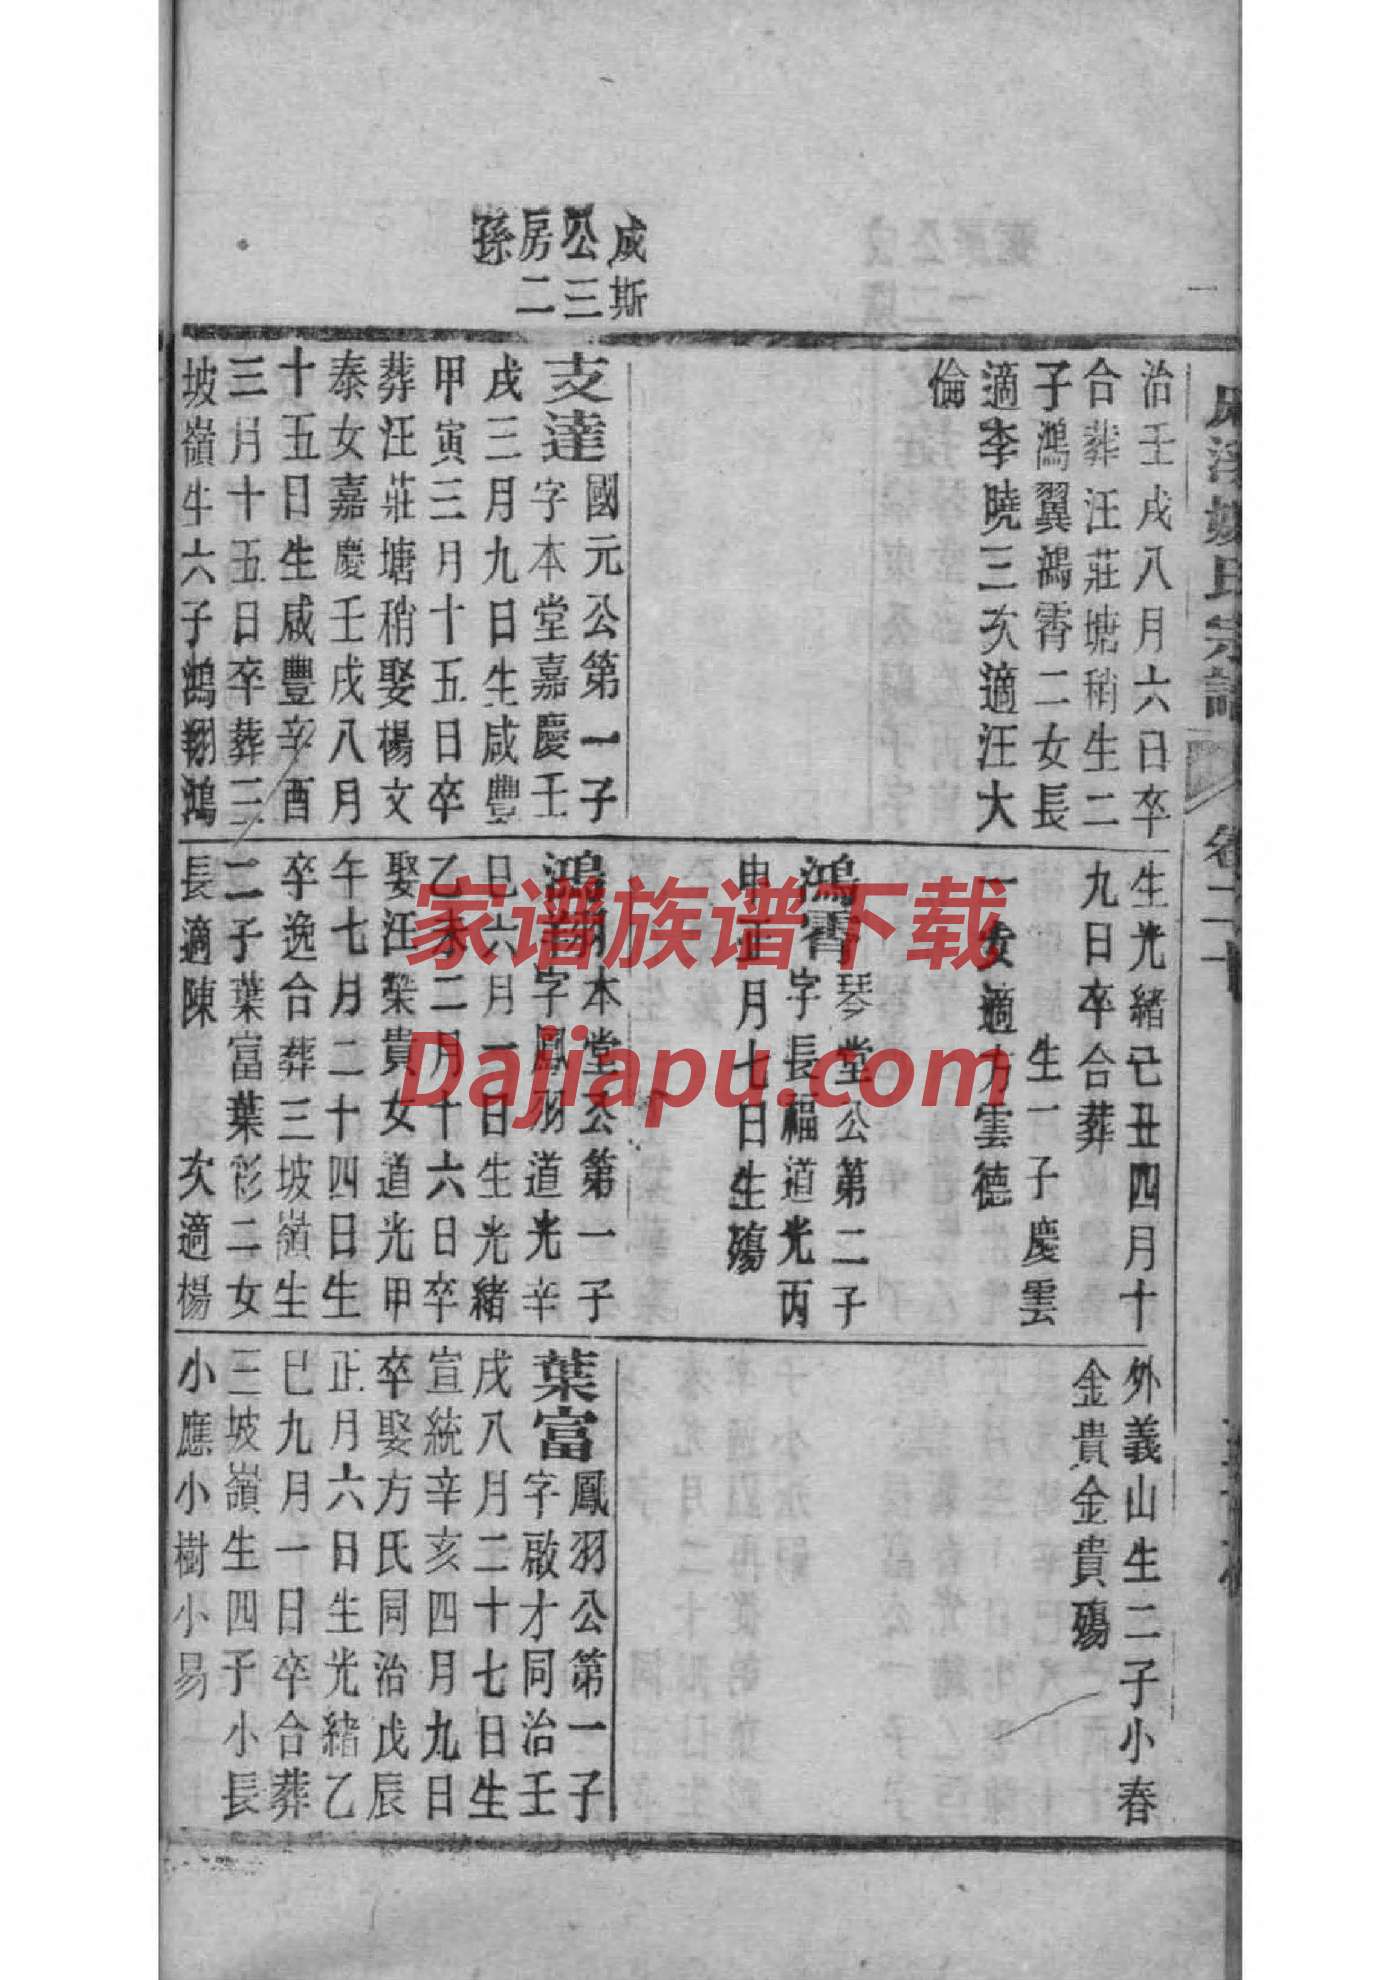 威斯
公三
房二
孫
治壬戌八月六日卒
合葬汪莊塘稍生二
子鴻翼鴻霄二女長
適李曉三次適汪大
倫
支達國元公第一子
字本堂嘉慶壬
戌三月九日生咸豐
甲寅三月十五日卒
葬汪莊塘稍娶楊文
泰女嘉慶壬戌八月
十五日生咸豐辛酉
三月十五日卒葬三
坡嶺生六子鴻翔鴻
生光緒己丑四月十
九日卒合葬
生一子慶雲
一女適方雲德
鴻霄琴堂公第二子
字長福道光丙
申正月七日生殤
鴻翔本堂公第一子
字鳳羽道光辛
巳六月一日生光緒
乙未二月十六日卒
娶汪榮貴女道光甲
午七月二十四日生
卒逸合葬三坡嶺生
二子葉富葉彩二女
長適陳 次適楊
外義山生二子小春
金貴金貴殤
葉富鳳羽公第一子
字啟才同治壬
戌八月二十七日生
宣統辛亥四月九日
卒娶方氏同治戊辰
正月六日生光緒乙
巳九月一日卒合葬
三坡嶺生四子小長
小應小樹小易
家谱族谱下载
Dajiapu.com